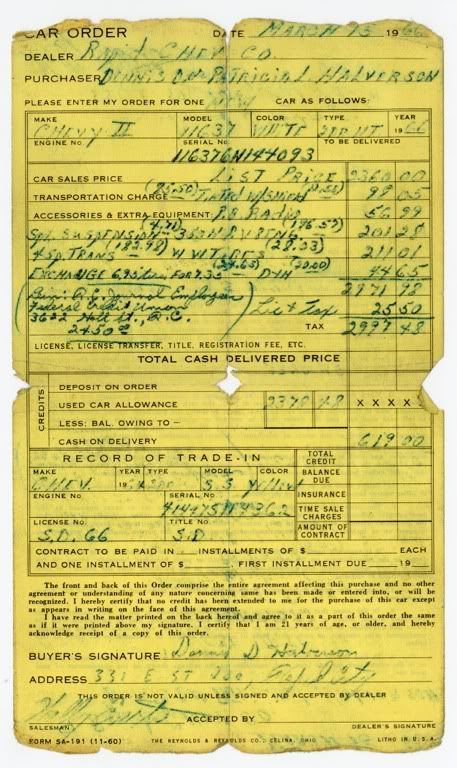 CAR ORDER DATE MARCH 15 1966
DEALER Rapid CHEV CO.
PURCHASER DENNIS D. or PATRICIA L HALVERSON
PLEASE ENTER MY ORDER FOR ONE New CAR AS FOLLOWS:
MAKE MODEL COLOR TYPE YEAR
CHEVY II 11637 WHITE 2DR HT 1966
ENGINE NO. SERIAL NO. TO BE DELIVERED
116376N144093
CAR SALES PRICE LIST PRICE 2360.00
TRANSPORTATION CHARGE (85.50) Tinted W/Shield 98 05
ACCESSORIES & EXTRA EQUIPMENT: P.B. Radio 56 99
Spl. SUSPENSION (4.71) 350 H.P. V8 ENG. 201 28
4 SPD. TRANS W W TIRES (28.03) 211 01
EXCHANGE 6.95 for 7.35 (24.65) (20.00) 44 65
2971 98
Federal Credit Union Lic & Tax 25 50
2450 TAX 2997 48
LICENSE, LICENSE TRANSFER, TITLE, REGISTRATION FEE, ETC.
TOTAL CASH DELIVERED PRICE
CREDITS
DEPOSIT ON ORDER
USED CAR ALLOWANCE 2378 48 X X X X X
LESS: BAL. OWING TO —
CASH ON DELIVERY 619 00
RECORD OF TRADE-IN TOTAL CREDIT
MAKE YEAR TYPE MODEL COLOR BALANCE DUE
CHEV. S.S Yellow
ENGINE NO. SERIAL NO. INSURANCE
TIME SALE CHARGES
LICENSE NO. TITLE NO. AMOUNT OF CONTRACT
S.D. 66 S.D
CONTRACT TO BE PAID IN INSTALLMENTS OF $ EACH
AND ONE INSTALLMENT OF $ FIRST INSTALLMENT DUE 19
The front and back of this Order comprise the entire agreement affecting this purchase and no other
agreement or understanding of any nature concerning same has been made or entered into, or will be
recognized. I hereby certify that no credit has been extended to me for the purchase of this car except
as appears in writing on the face of this agreement.
I have read the matter printed on the back hereof and agree to it as a part of this order the same
as if it were printed above my signature. I certify that I am 21 years of age, or older, and hereby
acknowledge receipt of a copy of this order.
BUYER'S SIGNATURE Dennis D Halverson
ADDRESS 331 E ST Joe, Rapid City
THIS ORDER IS NOT VALID UNLESS SIGNED AND ACCEPTED BY DEALER
ACCEPTED BY
SALESMAN DEALER'S SIGNATURE
FORM SA-191 (11-60) THE REYNOLDS & REYNOLDS CO., CELINA, OHIO LITHO IN U.S.A.